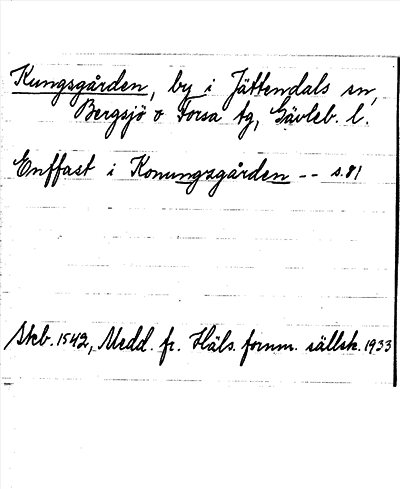 Kungsgården, by i Jättendals sn,
Bergsjö o Forsa tg, Gävleb. l.
Enffast i Konungzgården -- s. 81
Skb. 1542, Medd. fr. Häls. fornm. sällsk. 1933